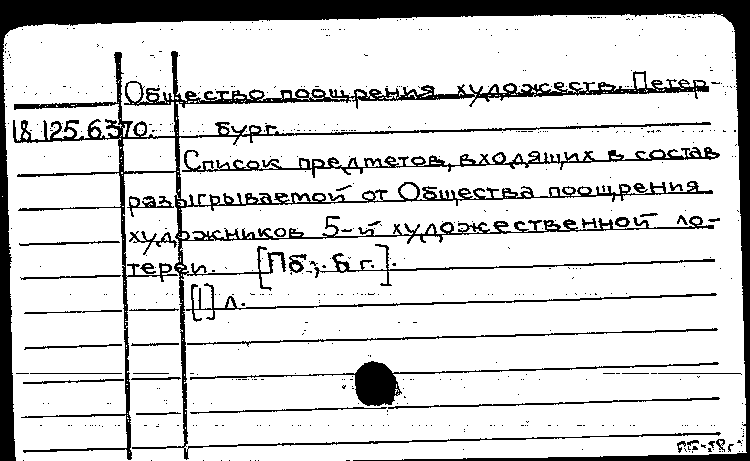 Общество поощрения художеств. Петер-
18.125.6.370. бург.
Список предметов, входящих в состав
разыгрываемой от Общества поощрения
художников 5-й художественной ло-
тереи. [Пб., б. г.].
[1] л.